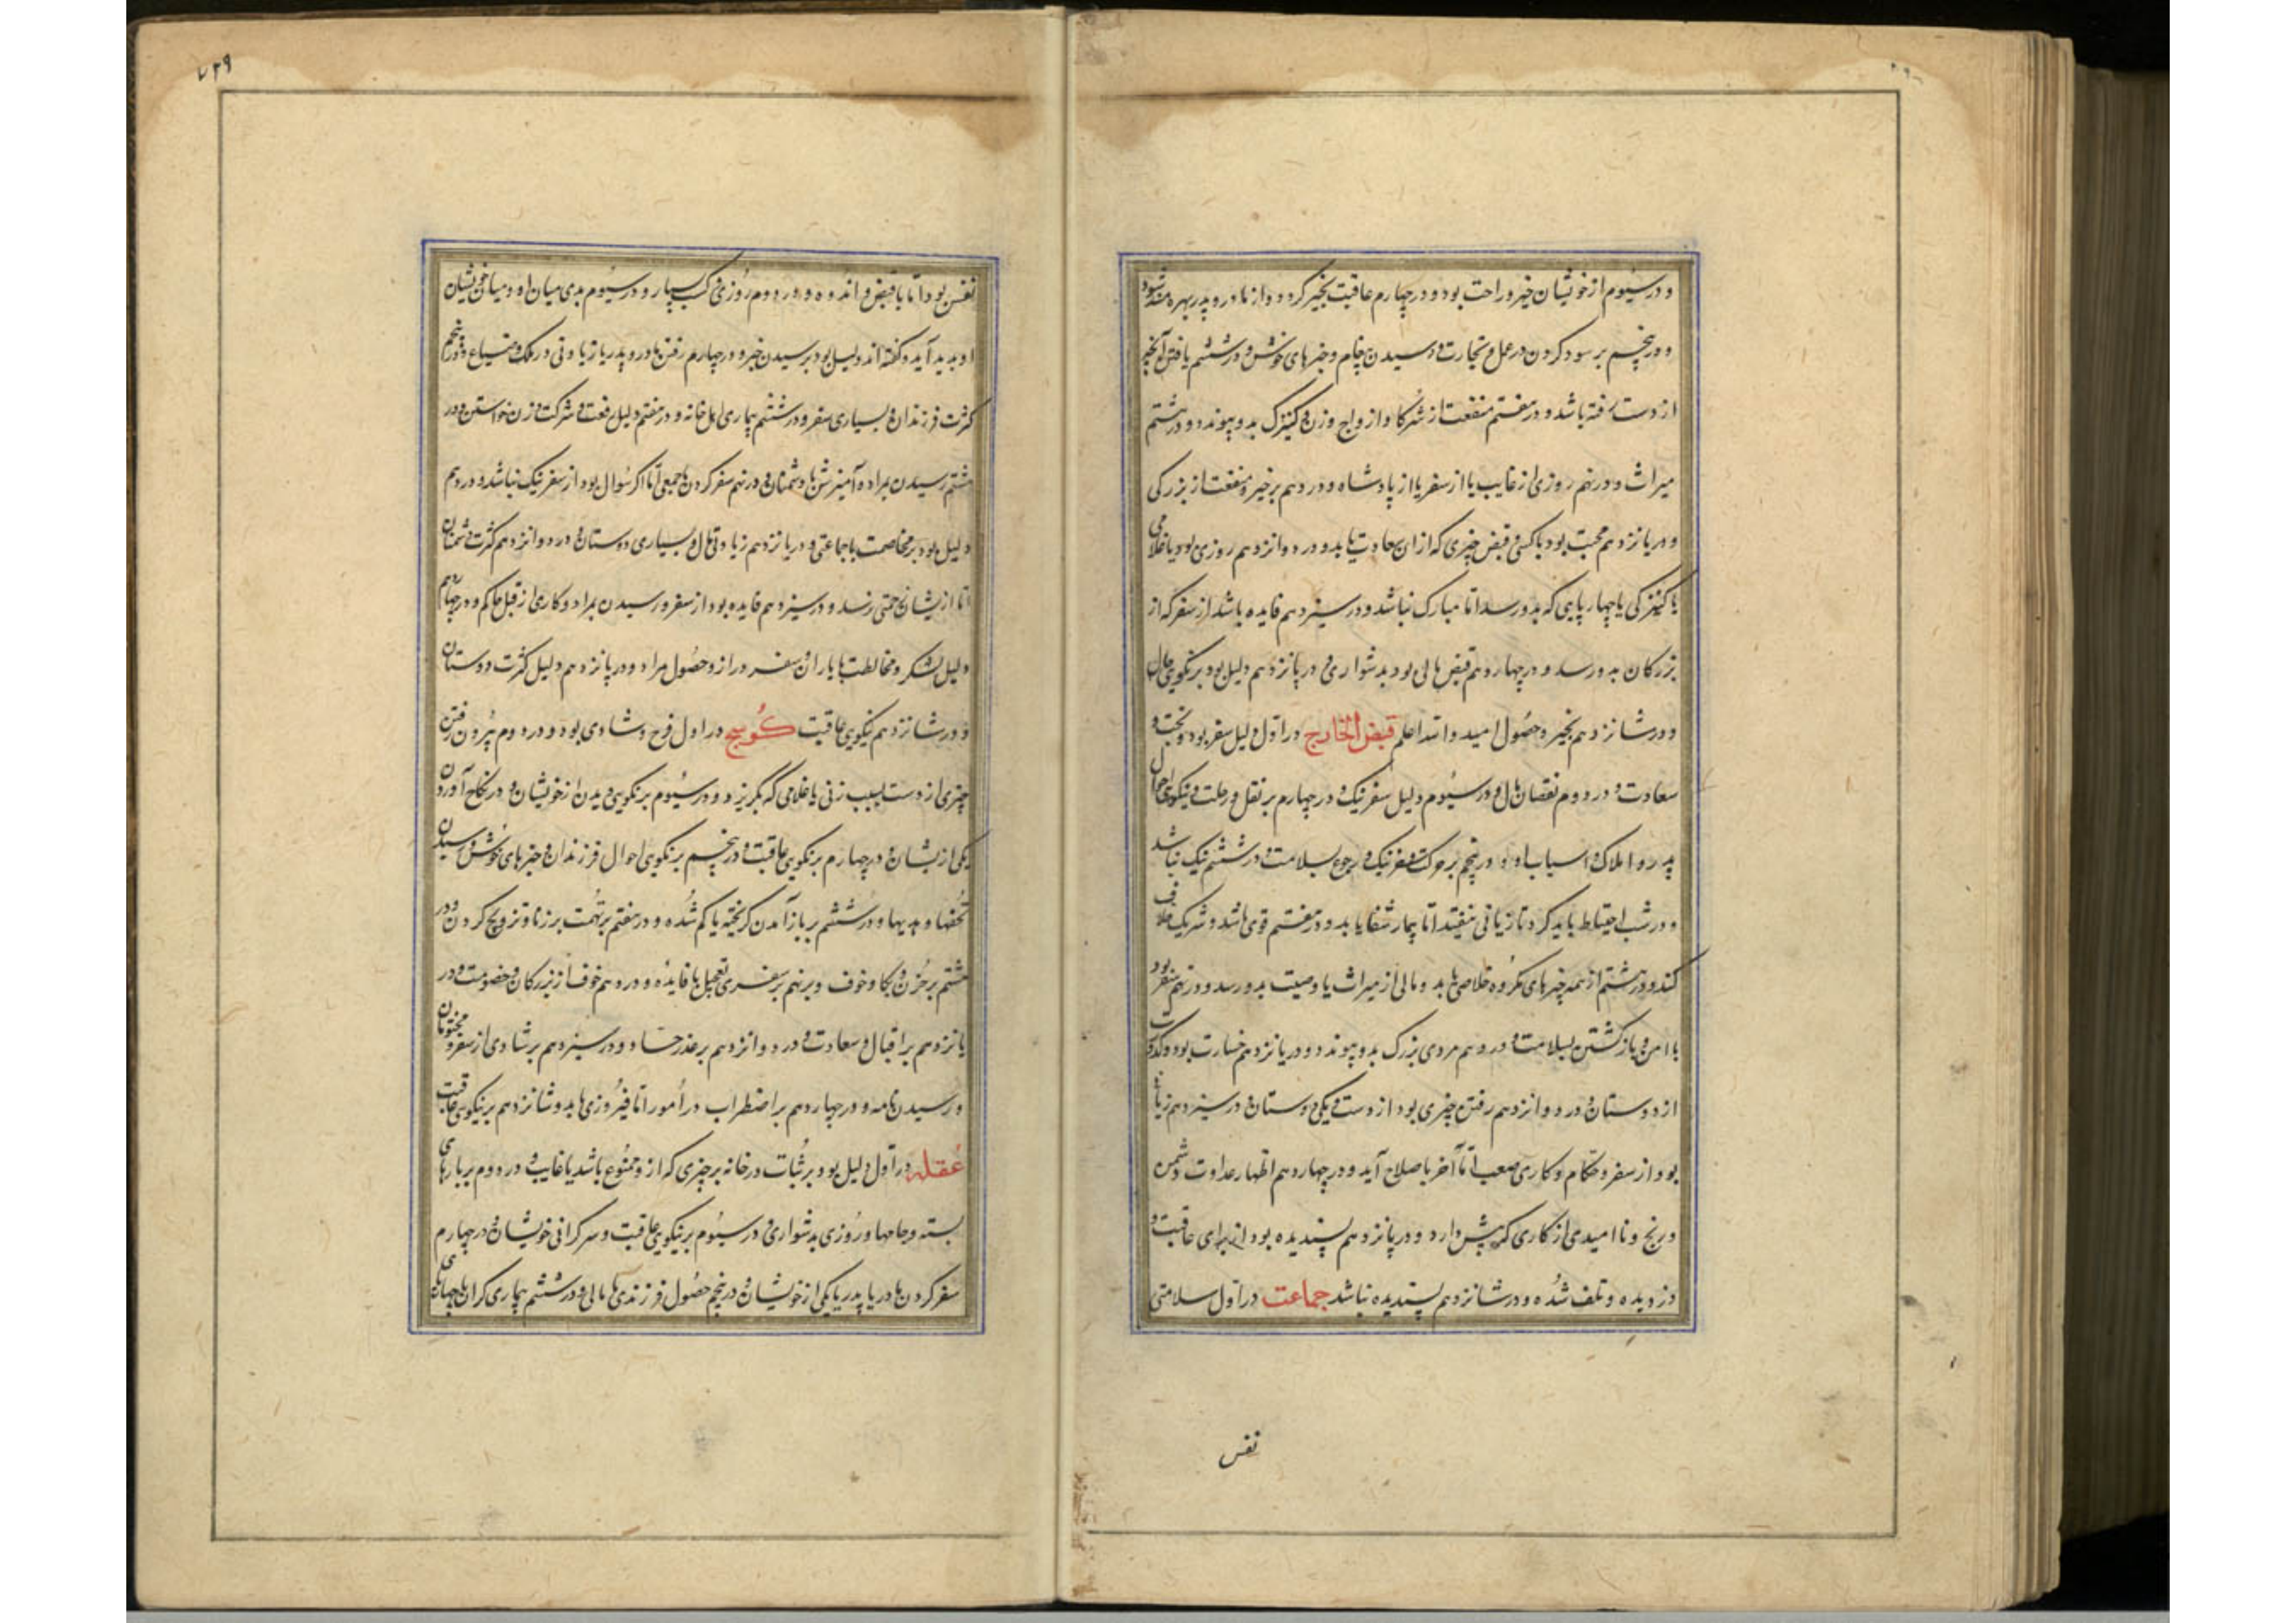 و در سیُوم از خویشان خیر و راحت بود و در چهارم عاقبت بخیر گردد و از مادر و پدر بهره مند شود
و در پنجم بر سود کردن در عمل و تجارت و رسیدن پیغام و خبرهای خوش و در ششم یافتن آنچیز
از دست رفته باشد و در هفتم منفعت از شرکا و ازواج و زن و کنیزک بدو پیوندد و در هشتم
میراث و در نهم روزی از غایب یا از سفر یا از پادشاه و در دهم بر خیر و منفعت از بزرکی
و در یازدهم محبت بود با کسی و قبض چیزی که از ان سعادت یابد و در دوازدهم روزی بود یا غلامی
یا کنیزکی یا چهارپایی که بدو رسد اما مبارک نباشد و در سیزدهم فایده باشد از سفر که از
بزرکان بدو رسد و در چهاردهم قبض مالی بود بدشواری و در پانزدهم دلیل بود بر نیکویی حال
و در شانزدهم بخیر و حصُول امید و الله اعلم قبض الخارج در اول دلیل سفر بود و نجبت و
سعادت و در دوم نقصان مال و در سیُوم دلیل سفر نیک و در چهارم بر نقل و رحلت و نیکویی احوال
پدر و املاک و اسباب او و در پنجم بر حرکت و سفر نیک و رجوع بسلامت و در ششم نیک نباشد
و در شب احتیاط باید کرد تا زیانی نیفتد اما بیمار شفا یابد و در هفتم قوی باشد و شریک خلاف
کند و در هشتم از همه چیزهای مکرُوه خلاصی یابد و مالی از میراث یا وصیت بدو رسد و در نهم سفر بود
با امن و باز کشتن بسلامت و در دهم مردی بزرک بدو پیوندد و در یازدهم خسارت بود و کدورت
از دوستان و در دوازدهم رفتن چیزی بود از دست و یکی دوستان و در سیزدهم زیان
بود از سفر و حکام و کاری صعب اما آخر باصلاح آید و در چهاردهم اظهار عداوت دشمن
و رنج و ناامیدی از کاری که پیش دارد و در پانزدهم پسندیده بود از برای عاقبت و
دزدیده و تلف شُده و در شانزدهم پسندیده نباشد جماعت در اول سلامتی
نفس
۷۳۹
نفس بود اما با قبض و اندوه و در دوم رُوزی و کسب بسیار و در سیُوم بدی میان او و میان خویشان
او پدید آید و کفته اند دلیل بود بر رسیدن خبر و در چهارم رفتن مادر و پدر یا زیادتی در ملک و ضیاع و در پنجم
کثرت فرزندان و بسیاری سفر و در ششم بیماری اهل خانه و در هفتم دلیل رفعت و شرکت و زن خواستن و در
هشتم رسیدن بمراد و آمیزش با دشمنان و در نهم سفر کردن با جمعی اما اکر سُوال بود از سفر نیک نباشد و در دهم
دلیل بود بر مخاصمت با جماعتی و در یازدهم زیادتی مال و بسیاری دوستان و در دوازدهم کثرت دشمنان
اما از یشان زحمتی رسد و در سیزدهم فایده بود از سفر و رسیدن بمراد و کاری از قبل حاکم و در چهاردهم
دلیل لشکر و مخالطت با یاران و سفر دراز و حصُول مراد و در پانزدهم دلیل کثرت دوستان
و در شانزدهم نیکویی عاقبت کُوسج در اول فرح و شادی بود و در دوم بیُرون رفتن
چیزی از دست بسبب زنی یا غلامی که بگریزد و در سیُوم بر نکویی دیدن از خویشان و در نکاح آوردن
یکی از یشان و در چهارم بر نکویی عاقبت و در پنجم بر نکویی احوال فرزندان و خبرهای خوش و رسیدن
تُحفها و هدیها و در ششم بر باز آمدن کریخته یا کم شُده و در هفتم بر تُهمت بر زنا و تزویج کردن و در
هشتم بر حُزن و بُکا و خوف و بر نهم بر سفری بتعجیل با فایده و در دهم خوف از بزرکان و خصُومت و در
یازدهم بر اقبال و سعادت و در دوازدهم بر غدر حساد و در سیزدهم بر شادی از سفر و مختومان
و رسیدن نامه و در چهاردهم بر اضطراب در اُمور اما فیرُوزی یابد و شانزدهم بر نیکویی عاقبت
عُقله در اول دلیل بود بر ثُبات در خانه بر چیزی که از و ممنُوع باشد یا غایب و در دوم بر بارهای
بسته و جامها و رُوزی بدشواری و در سیُوم بر نیکویی عاقبت و سرکرانی خویشان و در چهارم
سفر کردن مادر یا پدر یا یکی از خویشان و در پنجم حصُول فرزندی یا مالی و در ششم بیماری کران یا چهارپای